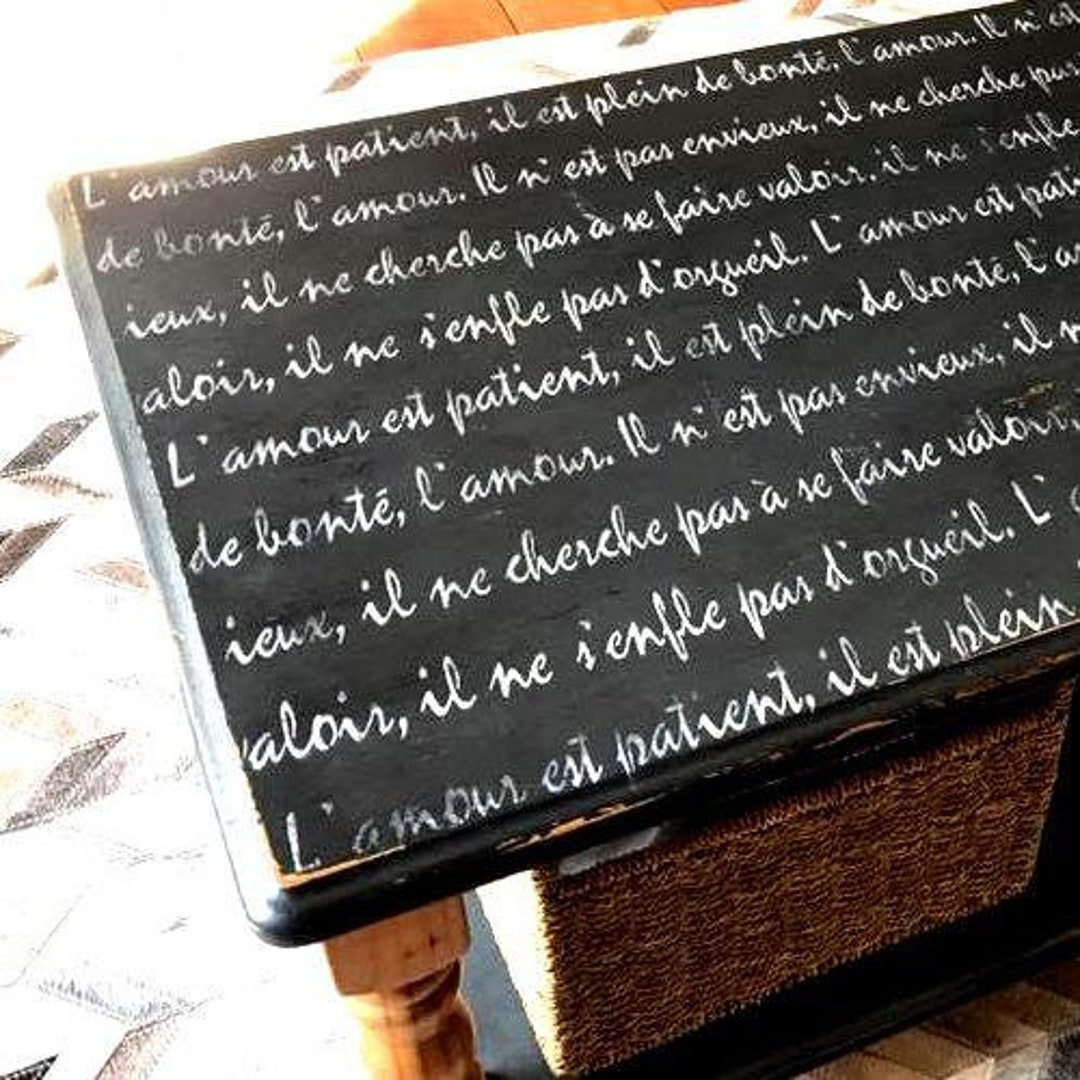 L'amour est patient, il est plein de bonté, l'amour. Il n'est
de bonté, l'amour. Il n'est pas envieux, il ne cherche pas
ieux, il ne cherche pas à se faire valoir, il ne s'enfle
aloir, il ne s'enfle pas d'orgueil. L'amour est pati
L'amour est patient, il est plein de bonté, l'a
de bonté, l'amour. Il n'est pas envieux, il n
ieux, il ne cherche pas à se faire valoir,
valoir, il ne s'enfle pas d'orgueil. L'a
L'amour est patient, il est plein